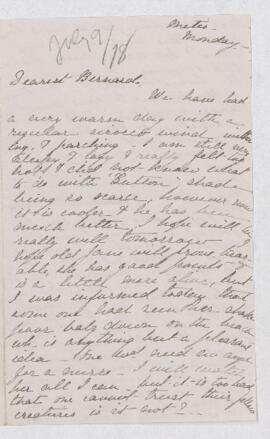 July 9/18
Metis
Monday
Dearest Bernard.
We have had
a very warm day with a
regular sirocco wind
& parching. I am still very
sleepy & lazy I really felt
hot I did not know what
to do with "Button" shade
being so scarce, however now
it is cooler & he has been
much better, I hope will be
really well tomorrow
I hope old Jane will prove
able, she has good points
is a little more alive, but
I was informed today that
some one had seen her
poor baby down on the beach
wh. is anything but a pleasant
idea - One would need an angel
for a nurse. I will watch
her all I can - but it is too bad
that one cannot trust their
creatures is it not? -